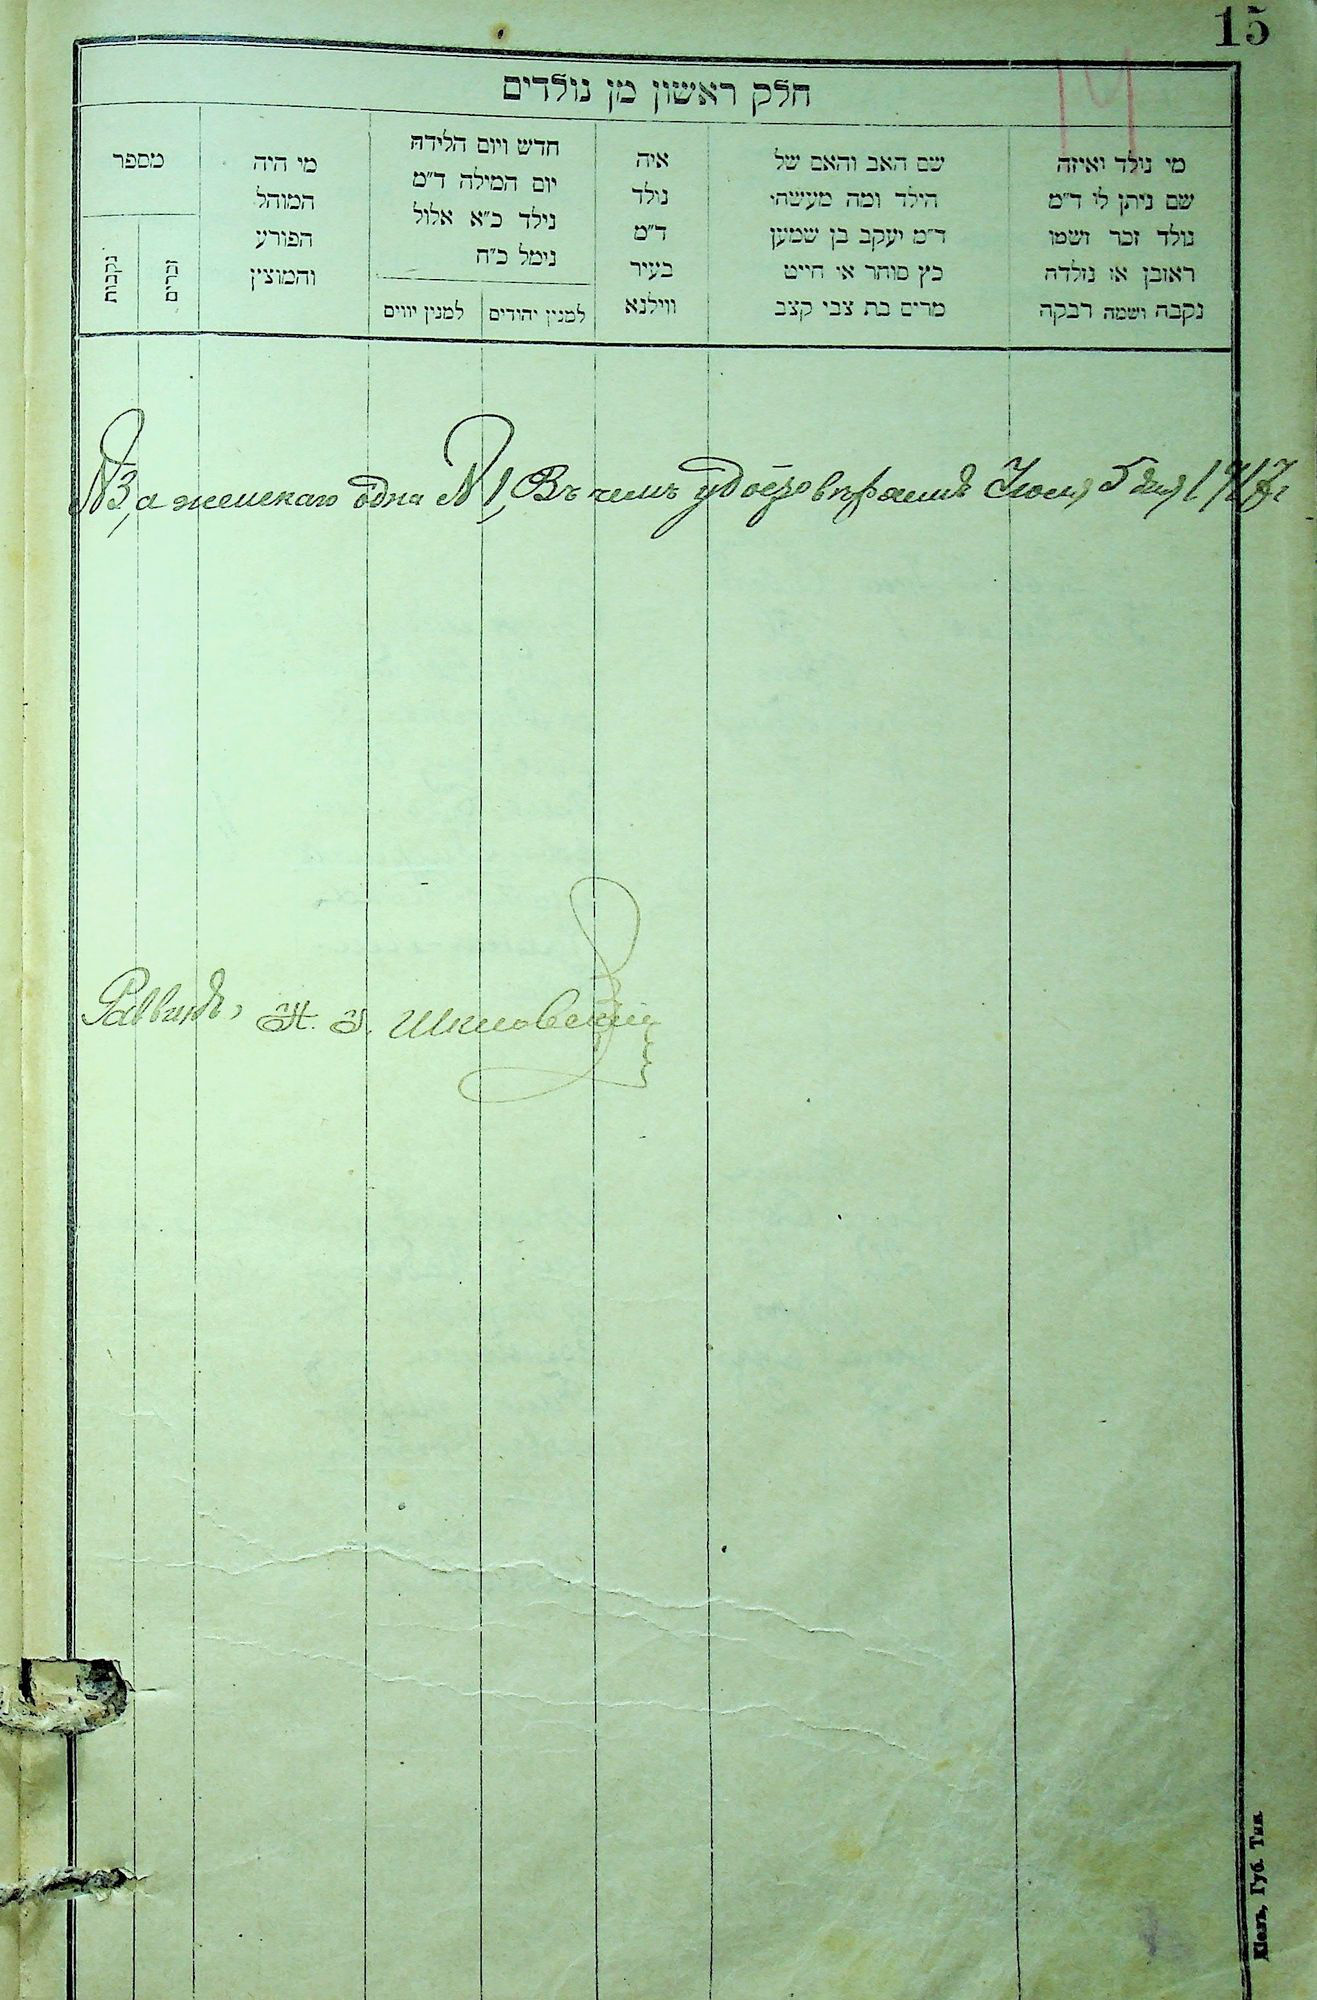 15
חלק ראשון מן נולדים
מי נולד ואיזה
שם ניתן לו ד״מ
נולד זכר ושמו
ראובן או נולדה
נקבה ושמה רבקה
שם האב והאם של
הילד ומה מעשהו
ד״מ יעקב בן שמעון
כץ סוחר או חייט
מרים בת צבי קצב
איה
נולד
ד״מ
בעיר
ווילנא
חדש ויום הלידה
יום המילה ד״מ
נילד כ״א אלול
נימל כ״ח
למנין יהודים
למנין יווים
מי היה
המוהל
הפורע
והמוצץ
מספר
זכרים
נקבות
№3, а женскаго одна №1, Въ чемъ удостовѣряемъ Іюля 5 дня 1917 г.
Раввинъ,
Кіевъ, Губ. Тип.